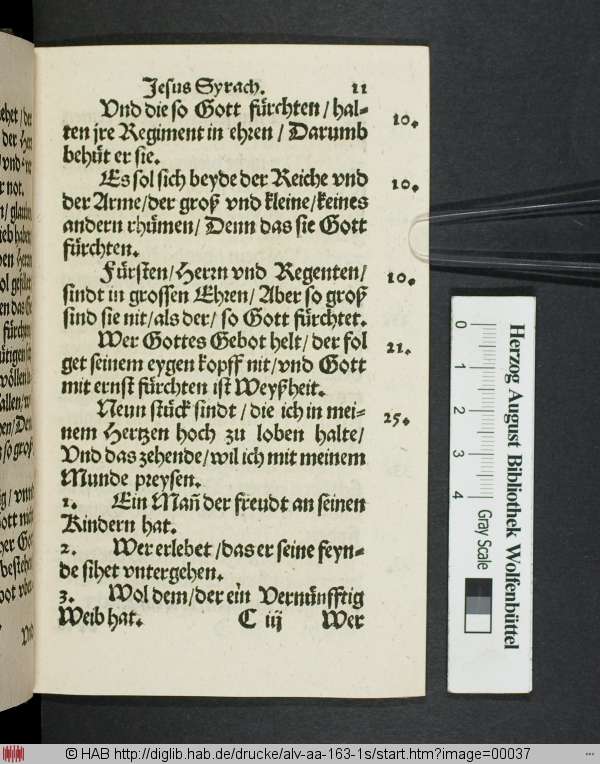 Jesus Syrach. 11
Vnd die so Gott fürchten / hal-
ten jre Regiment in ehren / Darumb 10.
behüt er sie.
Es sol sich beyde der Reiche vnd 10.
der Arme/der groß vnd kleine/keines
andern rhümen/ Denn das sie Gott
fürchten.
Fürsten/Herrn vnd Regenten/ 10.
sindt in grossen Ehren/ Aber so groß
sind sie nit/als der/ so Gott fürchtet.
Wer Gottes Gebot helt/ der fol 21.
get seinem eygen kopff nit/vnd Gott
mit ernst fürchten ist Weyßheit.
Neun stück sindt / die ich in mei-
nem Hertzen hoch zu loben halte/ 25.
Vnd das zehende/wil ich mit meinem
Munde preysen.
1. Ein Mañ der freudt an seinen
Kindern hat.
2. Wer erlebet /das er seine feyn-
de sihet vntergehen.
3. Wol dem/der ein Vernünfftig
Weib hat. C iij Wer
ehet / der
der Herr
r not.
n/ glauben
ieb haben
ben Herrn
fürchten
allen/
hen/Den
so groß
Herzog August Bibliothek Wolfenbüttel
0 1 2 3 4
Gray Scale
© HAB http://diglib.hab.de/drucke/alv-aa-163-1s/start.htm?image=00037